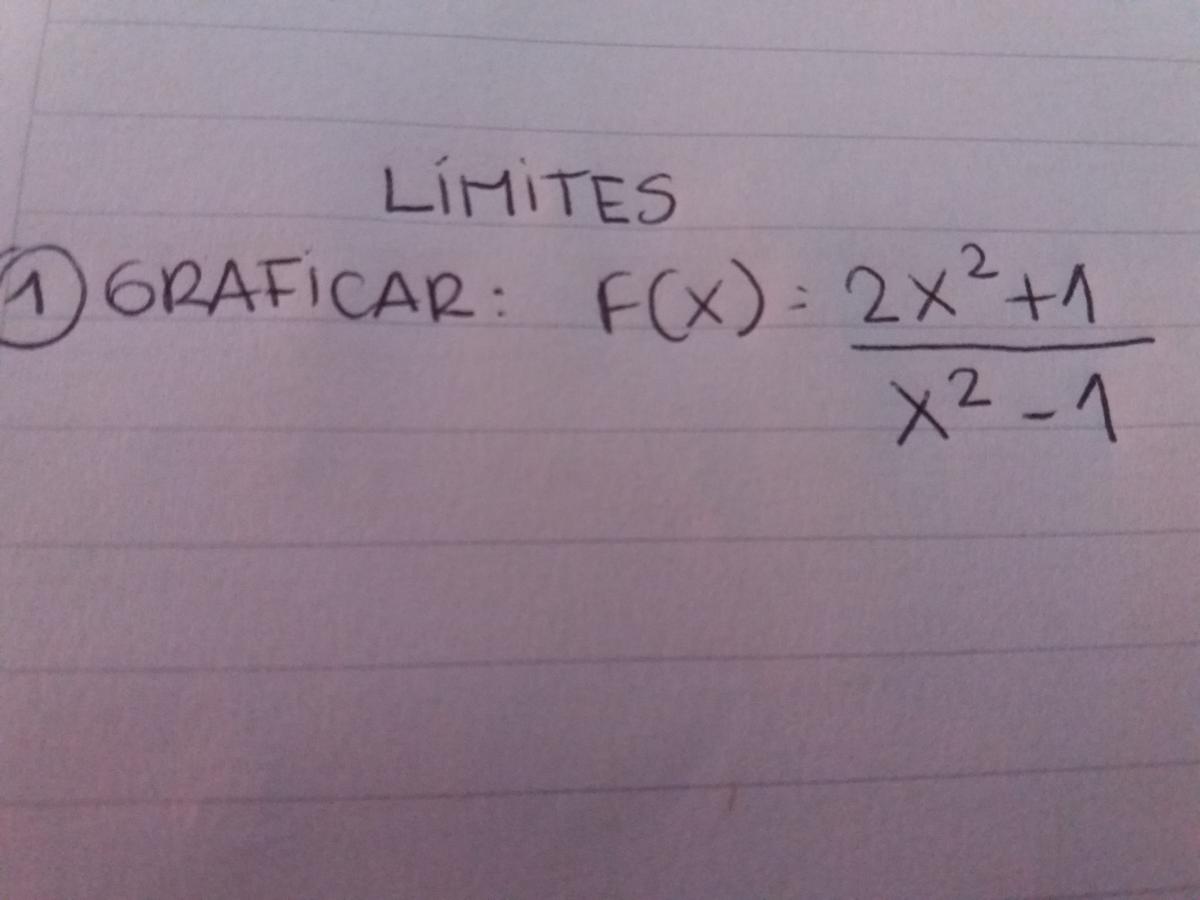 LÍMITES
① GRAFICAR: F(X) = 2x² + 1
x² - 1